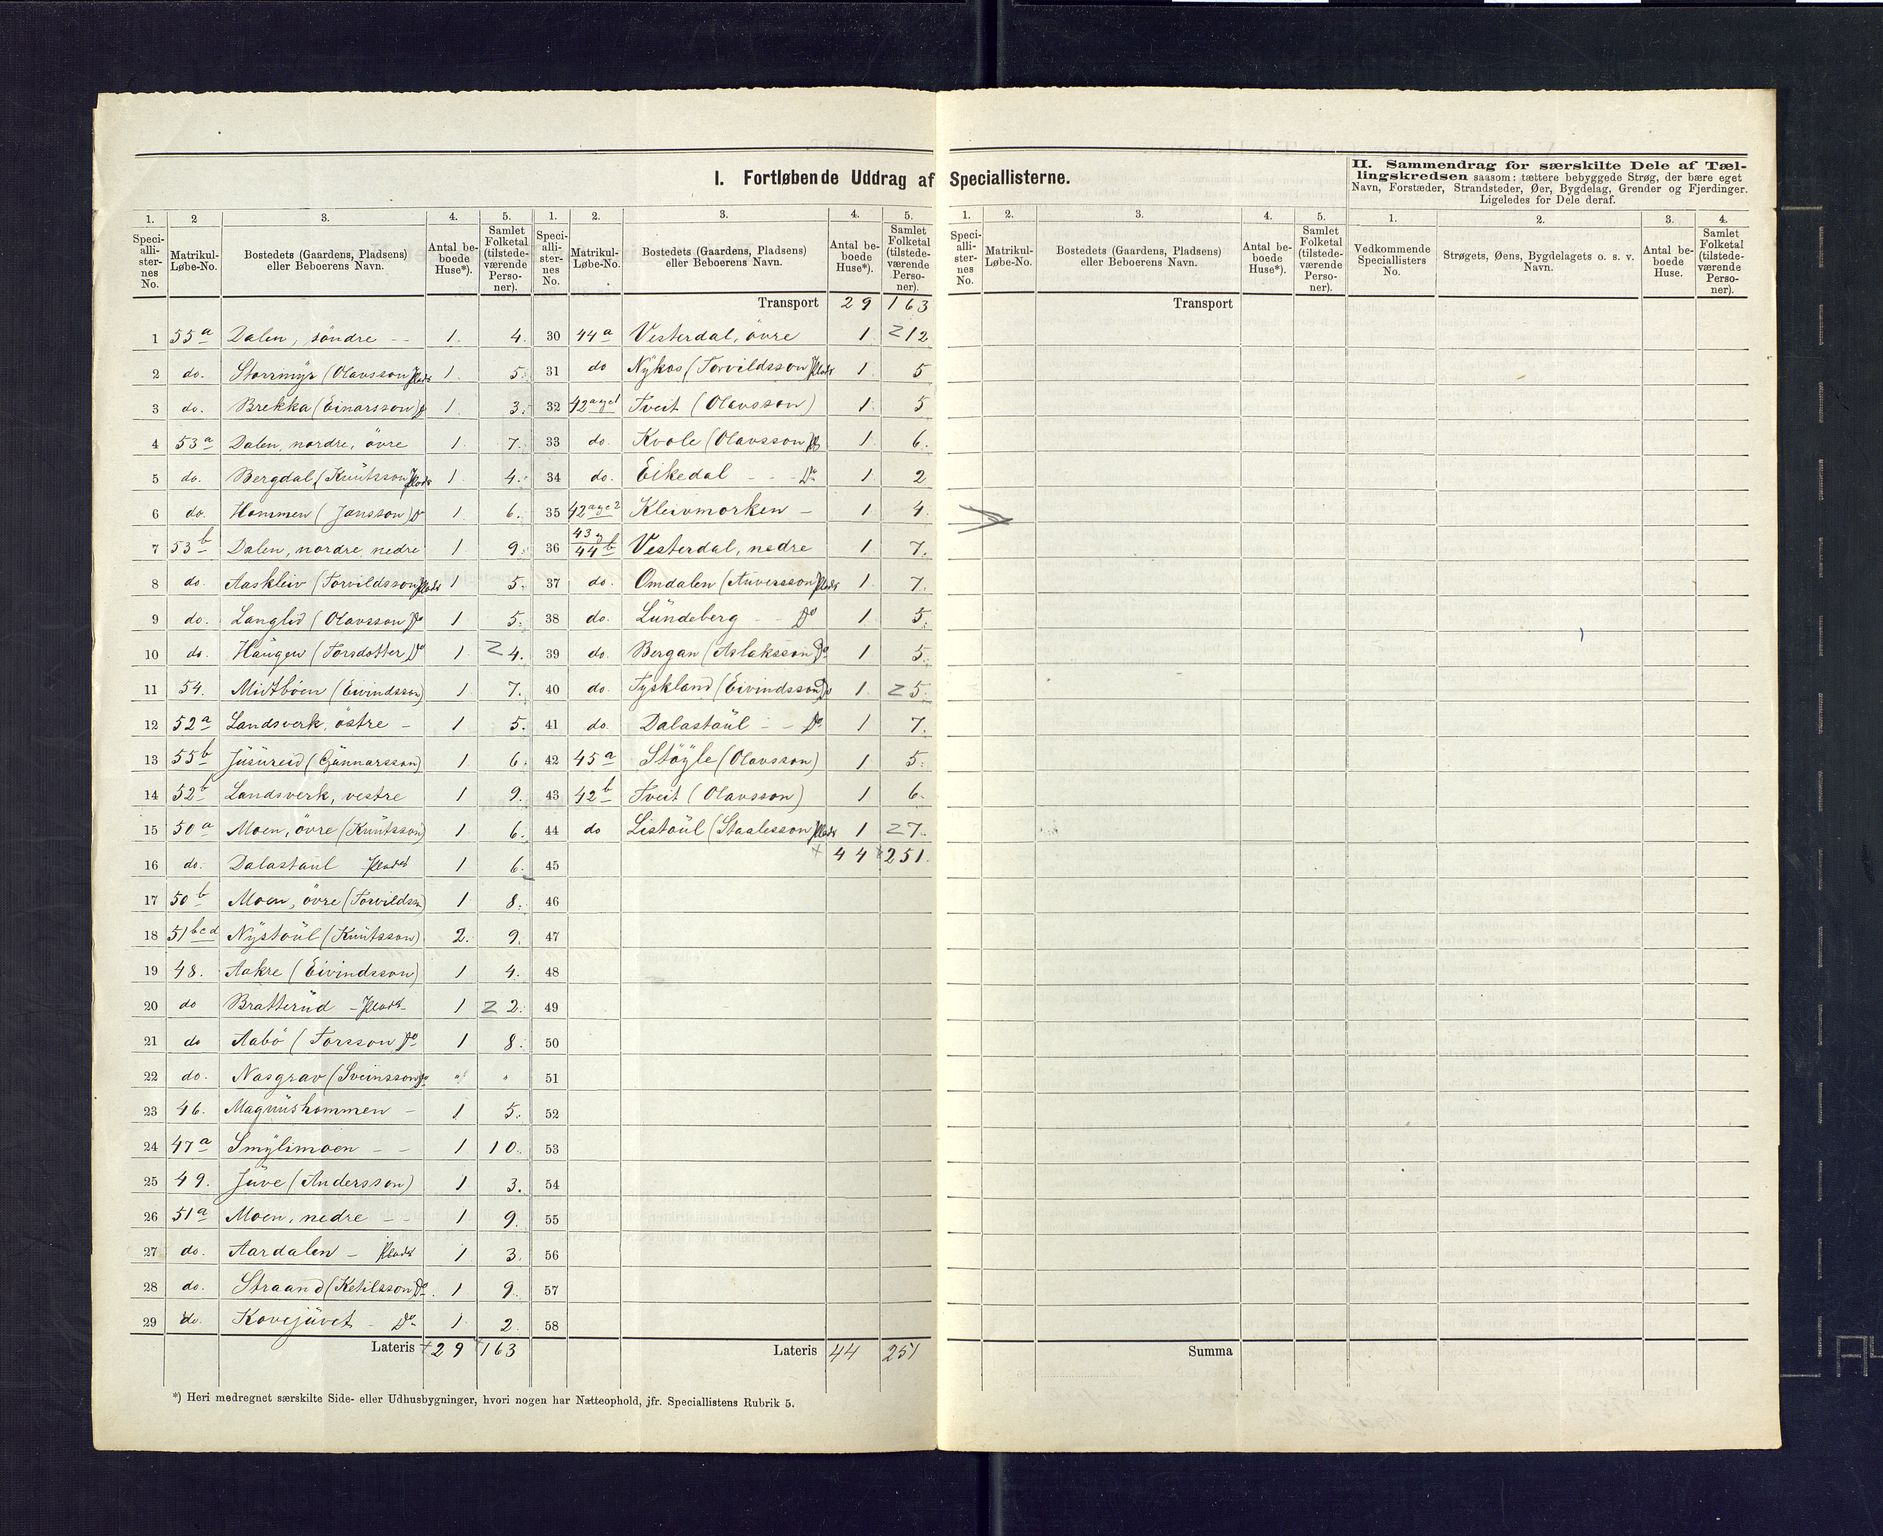 I. Fortløbende Uddrag af Speciallisterne.
II. Sammendrag for særskilte Dele af Tællingskredsen saasom: tættere bebyggede Strøg, der bære eget Navn, Forstæder, Strandsteder, Øer, Bygdelag, Grender og Fjerdinger. Ligeledes for Dele deraf.
1. 2 3. 4. 5.
Speciallisternes No. Matrikul-Løbe-No. Bostedets (Gaardens, Pladsens) eller Beboerens Navn. Antal beboede Huse*). Samlet Folketal (tilstedeværende Personer).
1 55a Dalen, söndre - - 1. 4.
2 do. Storrmyr (Olavsson Plads 1. 5.
3 do. Brekka (Einarsson) Do 1. 3.
4 53a Dalen, nordre, övre 1. 7.
5 do. Bergdal (Knutsson Plads 1. 4.
6 do. Hommen (Jansson) Do 1. 6.
7 53b Dalen, nordre, nedre 1 9.
8 do. Aaskleiv (Torvildsson Plads 1 5.
9 do. Langlid (Olavsson Do 1 5.
10 do. Haugen (Torsdotter Do 1. Z 4.
11 54. Midtböen (Eivindsson) 1 7.
12 52a Landsverk, östre - 1 5.
13 55b Jusureid (Gunnarsson) 1 6.
14 52b Landsverk, vestre 1 9.
15 50a Moen, övre (Knutsson) 1 6.
16 do. Dalastaul Plads 1 6.
17 50b Moen, övre (Torvildsn 1 8.
18 51bcd Nystaul (Knutsson) 2. 9.
19 48. Aakre (Eivindsson) 1 4.
20 do Bratterud - Plads - 1 Z 2.
21 do Aabö (Torsson Do 1 8.
22 do. Nasgrav (Sveinsson Do " "
23 46. Magnushommen - 1 5.
24 47a Smylimoen - - 1 10.
25 49. Juve (Andersson) 1 3.
26 51a Moen, nedre - - 1 9.
27 do. Aardalen - Plads 1 3.
28 do. Straand (Ketilsson Do 1 9.
29 do. Kovejuvet - Do 1. 2.
Lateris 29 163
1. 2. 3. 4. 5.
Speciallisternes No. Matrikul-Løbe-No. Bostedets (Gaardens, Pladsens) eller Beboerens Navn. Antal beboede Huse*). Samlet Folketal (tilstedeværende Personer).
Transport 29 163
30 44a Vesterdal, övre 1. Z 12
31 do Nykos (Torvildsson Plads 1. 5
32 42a Tveit (Olavsson) 1. 5
33 do. Kvole (Olavsson Do 1. 6.
34 do. Eikedal - - Do 1. 2
35 42a Kleivmorken - 1 4.
36 43 44b Vesterdal, nedre 1 7.
37 do. Omdalen (Auversson Plads 1. 7.
38 do. Lundeberg - - Do 1 5.
39 do. Bergan (Aslaksson Do 1 5.
40 do. Tyskland (Eivindsson Do 1. Z 5.
41 do. Dalastaul - - Do 1 7.
42 45a Stöyle (Olavsson) 1 5.
43 42b Tveit (Olavsson) 1 6.
44 do Listaul (Staalesson Plads 1 Z 7.
45 44 251.
46
47
48
49
50
51
52
53
54
55
56
57
58
Lateris 44 251
1. 2. 3. 4. 5.
Speciallisternes No. Matrikul-Løbe-No. Bostedets (Gaardens, Pladsens) eller Beboerens Navn. Antal beboede Huse*). Samlet Folketal (tilstedeværende Personer).
Transport
Summa
1. 2. 3. 4.
Vedkommende Speciallisters No. Strøgets, Øens, Bygdelagets o. s. v. Navn. Antal beboede Huse. Samlet Folketal (tilstedeværende Personer).
*) Heri medregnet særskilte Side- eller Udhusbygninger, hvori nogen har Natteophold, jfr. Speciallistens Rubrik 5.